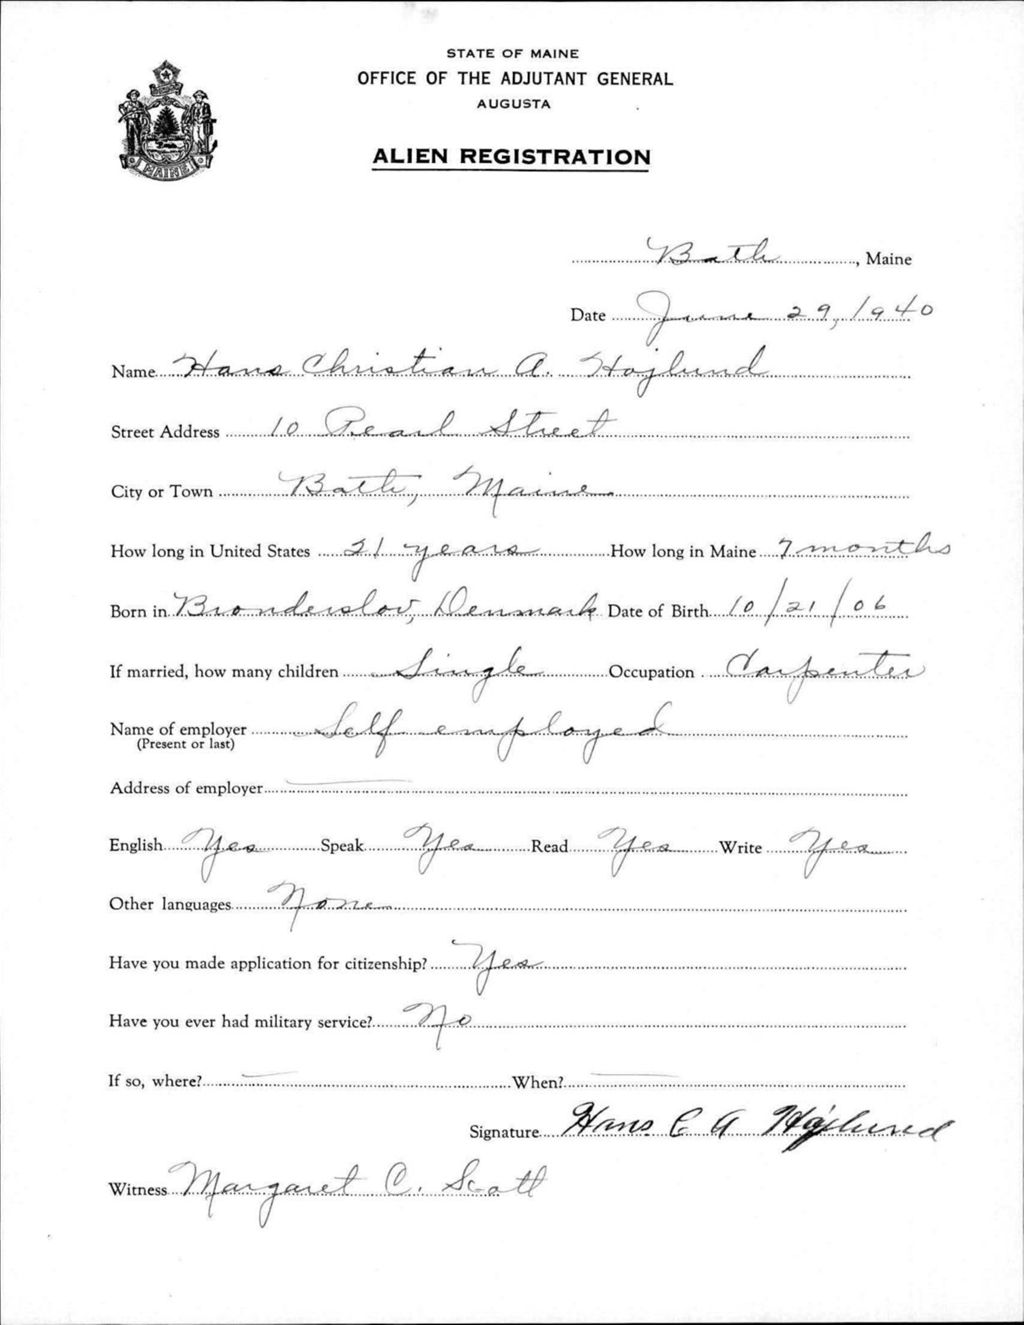 STATE OF MAINE
OFFICE OF THE ADJUTANT GENERAL
AUGUSTA
ALIEN REGISTRATION
MAINE
Bath, Maine
Date June 29, 1940
Name Hans Christian A. Hojlund
Street Address 10 Pearl Street
City or Town Bath, Maine
How long in United States 21 years How long in Maine 7 months
Born in Bronderslov, Denmark Date of Birth 10/21/06
If married, how many children Single Occupation Carpenter
Name of employer Self employed
(Present or last)
Address of employer
English Yes Speak Yes Read Yes Write Yes
Other languages None
Have you made application for citizenship? Yes
Have you ever had military service? No
If so, where? When?
Signature Hans C A Højlund
Witness Margaret C. Scott